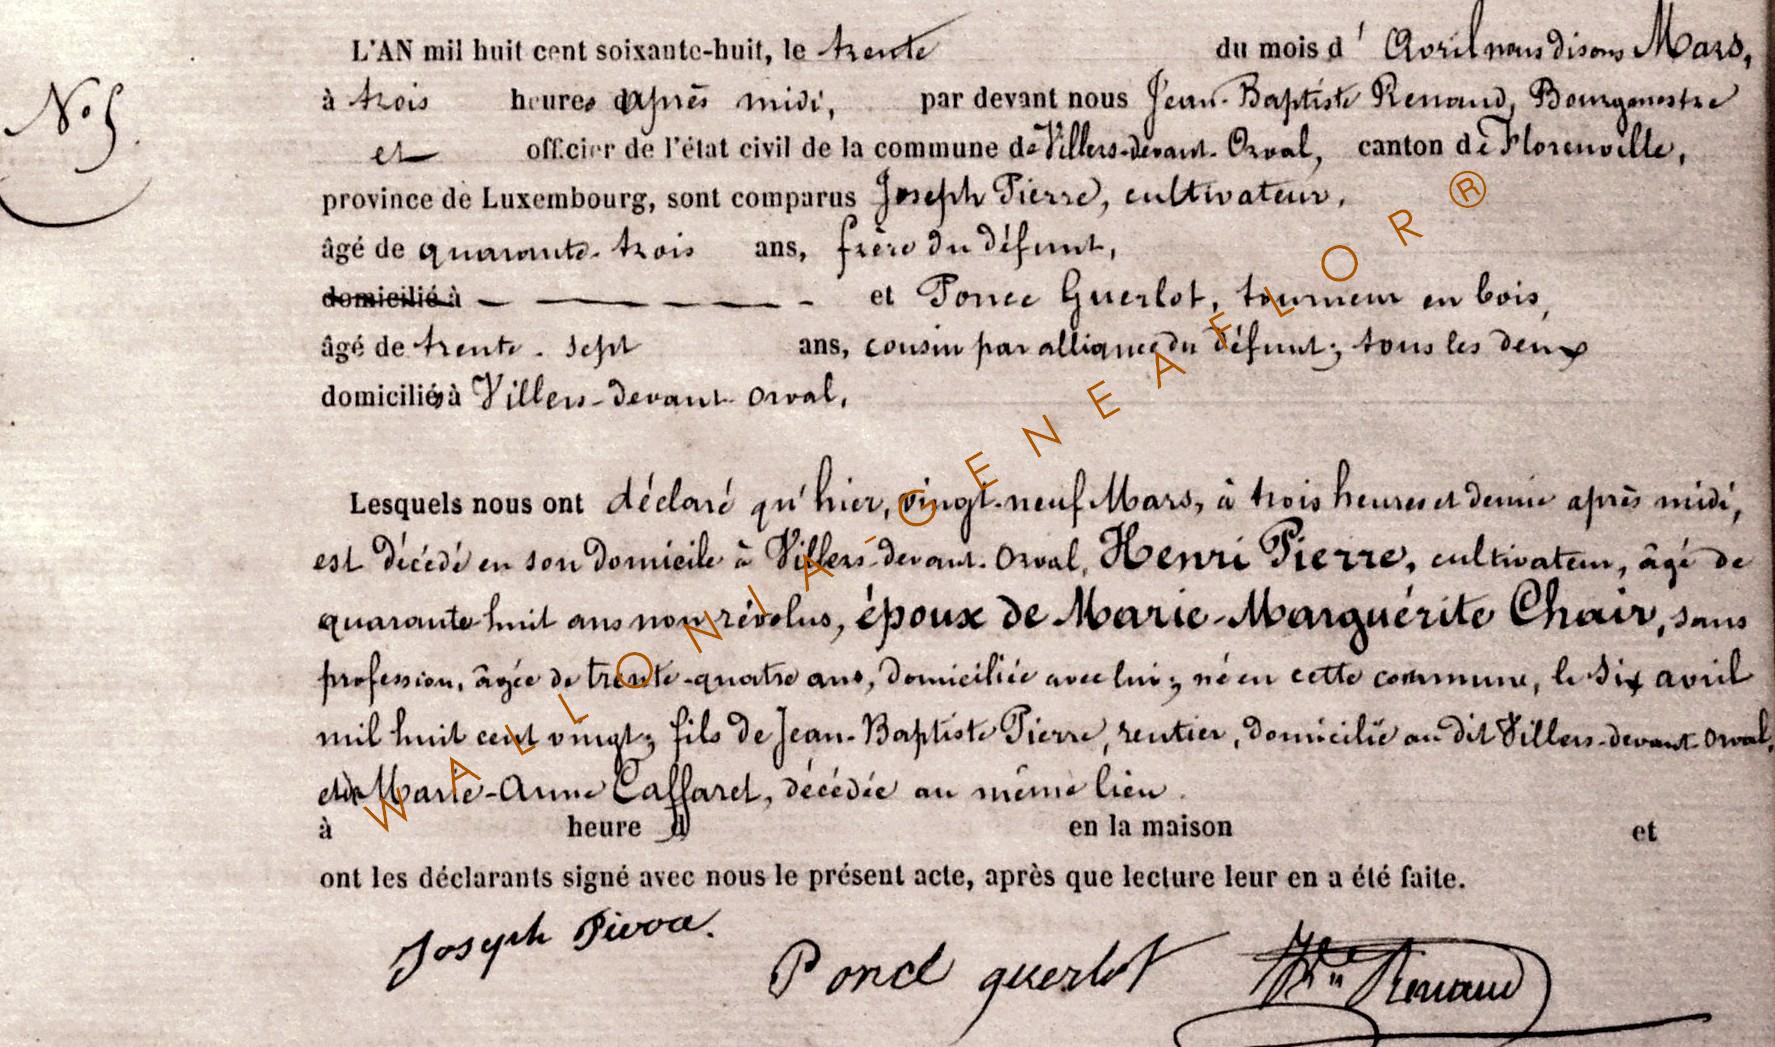 N° 5.
L'AN mil huit cent soixante-huit, le trente du mois d'Avril nous disons Mars,
à trois heures après midi, par devant nous Jean-Baptiste Renaud, Bourgmestre
et officier de l'état civil de la commune de Villers-devant-Orval, canton de Florenville,
province de Luxembourg, sont comparus Joseph Pierre, cultivateur,
âgé de quarante-trois ans, frère du défunt,
domicilié à et Ponce Guerlot, tourneur en bois,
âgé de trente-sept ans, cousin par alliance du défunt; tous les deux
domiciliés à Villers-devant-Orval,
Lesquels nous ont déclaré qu'hier, vingt-neuf Mars, à trois heures et demie après midi,
est décédé en son domicile à Villers-devant-Orval, Henri Pierre, cultivateur, âgé de
quarante-huit ans non révolus, époux de Marie-Marguérite Chair, sans
profession, âgée de trente-quatre ans, domiciliée avec lui; né en cette commune, le six avril
mil huit cent vingt; fils de Jean-Baptiste Pierre, rentier, domicilié au dit Villers-devant-Orval,
et de Marie-Anne Caffaret, décédée au même lieu.
à heure d en la maison et
ont les déclarants signé avec nous le présent acte, après que lecture leur en a été faite.
Joseph Pierre.
Ponce guerlot
Renaud
WALLONIA-GENEAFLOR®